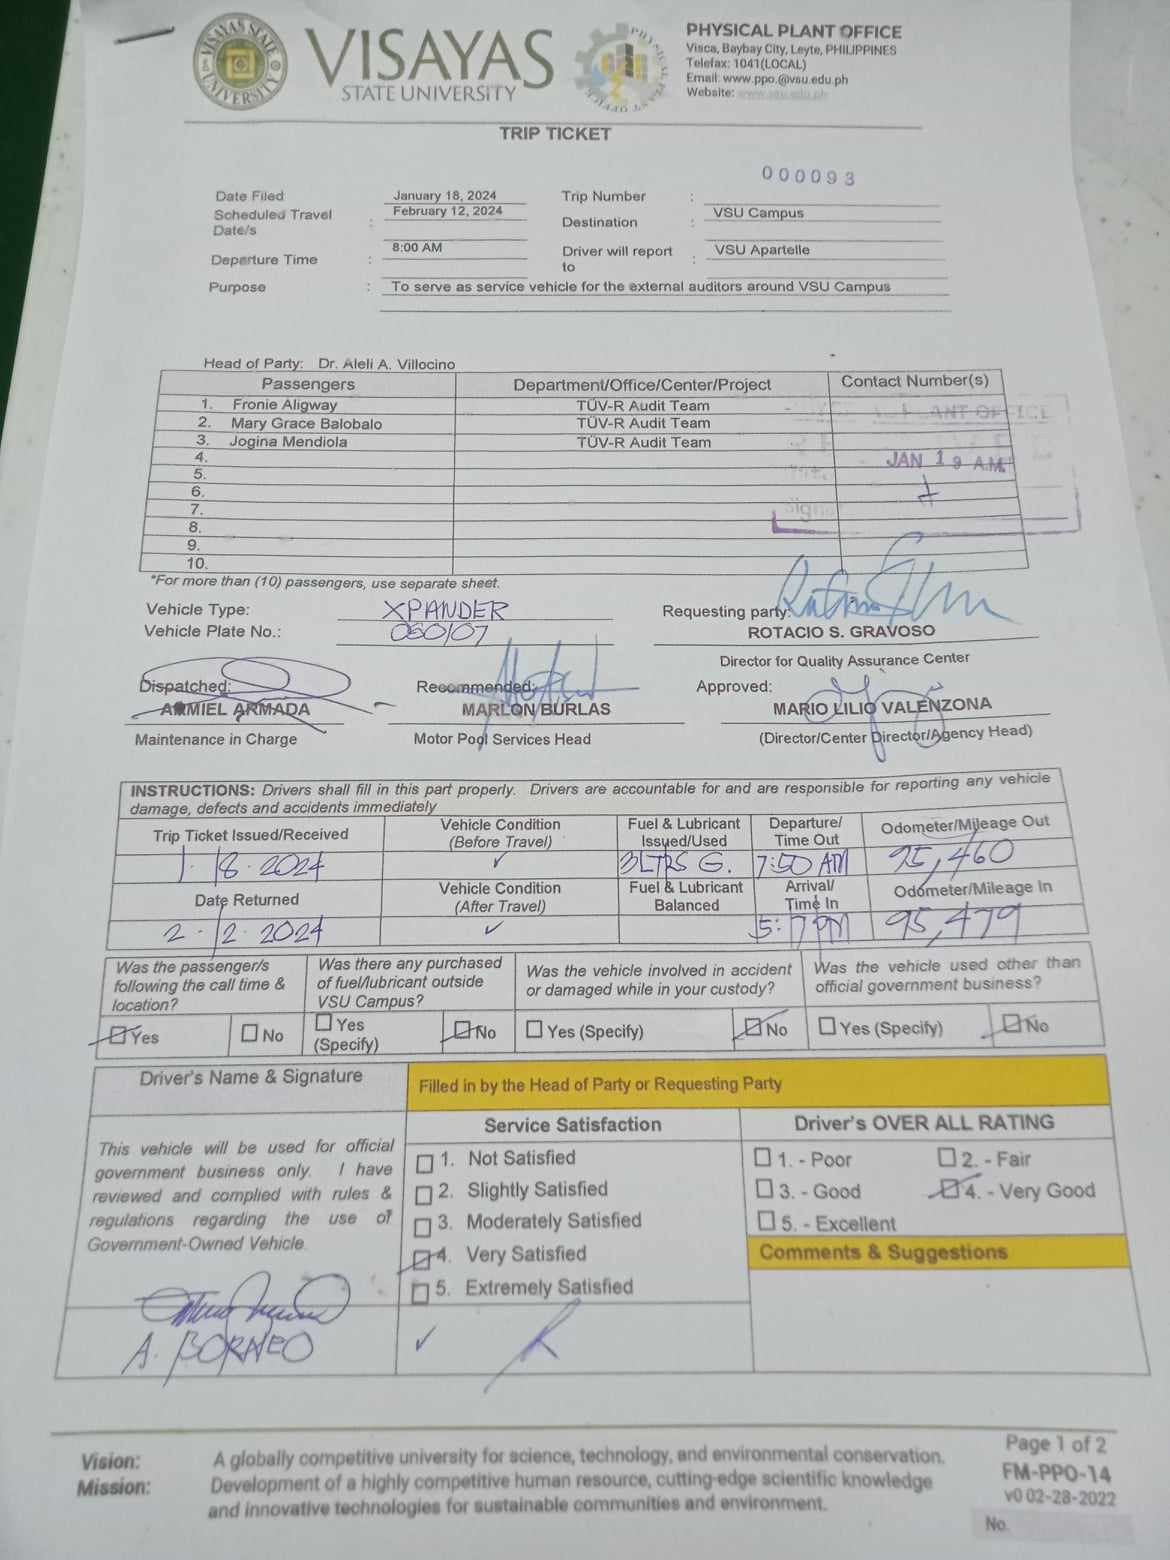 VISAYAS
STATE UNIVERSITY
VISAYAS STATE UNIVERSITY
PHYSICAL PLANT OFFICE
Visca, Baybay City, Leyte, PHILIPPINES
Telefax: 1041(LOCAL)
Email: www.ppo.@vsu.edu.ph
Website: www.vsu.edu.ph
TRIP TICKET
000093
Date Filed January 18, 2024 Trip Number :
Scheduled Travel Date/s : February 12, 2024 Destination : VSU Campus
Departure Time : 8:00 AM Driver will report to : VSU Apartelle
Purpose : To serve as service vehicle for the external auditors around VSU Campus
Head of Party: Dr. Aleli A. Villocino
Passengers Department/Office/Center/Project Contact Number(s)
1. Fronie Aligway TÜV-R Audit Team
2. Mary Grace Balobalo TÜV-R Audit Team
3. Jogina Mendiola TÜV-R Audit Team
4.
5.
6.
7.
8.
9.
10.
PLANT OFFICE
JAN 19 A.M.
*For more than (10) passengers, use separate sheet.
Vehicle Type: XPANDER
Vehicle Plate No.: 060107
Requesting party:
ROTACIO S. GRAVOSO
Director for Quality Assurance Center
Dispatched: Recommended: Approved:
ARMIEL ARMADA MARLON BURLAS MARIO LILIO VALENZONA
Maintenance in Charge Motor Pool Services Head (Director/Center Director/Agency Head)
INSTRUCTIONS: Drivers shall fill in this part properly. Drivers are accountable for and are responsible for reporting any vehicle
damage, defects and accidents immediately
Trip Ticket Issued/Received Vehicle Condition (Before Travel) Fuel & Lubricant Issued/Used Departure/ Time Out Odometer/Mileage Out
1-18-2024 ✓ 3LTRS G. 7:50 AM 95,460
Date Returned Vehicle Condition (After Travel) Fuel & Lubricant Balanced Arrival/ Time In Odometer/Mileage In
2-12-2024 ✓ 5:17PM 95,479
Was the passenger/s following the call time & location? Was there any purchased of fuel/lubricant outside VSU Campus? Was the vehicle involved in accident or damaged while in your custody? Was the vehicle used other than official government business?
Yes No Yes (Specify) No Yes (Specify) No Yes (Specify) No
Driver's Name & Signature
Filled in by the Head of Party or Requesting Party
This vehicle will be used for official
government business only. I have
reviewed and complied with rules &
regulations regarding the use of
Government-Owned Vehicle.
A. BORNEO
Service Satisfaction
1. Not Satisfied
2. Slightly Satisfied
3. Moderately Satisfied
4. Very Satisfied
5. Extremely Satisfied
✓
Driver's OVER ALL RATING
1. - Poor 2. - Fair
3. - Good 4. - Very Good
5. - Excellent
Comments & Suggestions
Vision: A globally competitive university for science, technology, and environmental conservation.
Mission: Development of a highly competitive human resource, cutting-edge scientific knowledge
and innovative technologies for sustainable communities and environment.
Page 1 of 2
FM-PPO-14
v0 02-28-2022
No.